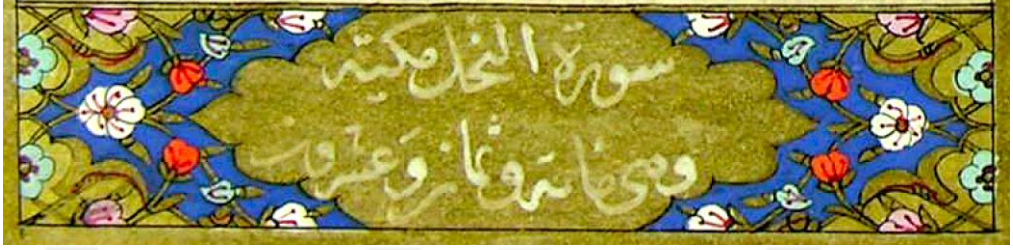 سورة النحل مكية
وهي مائة وثمان وعشرون